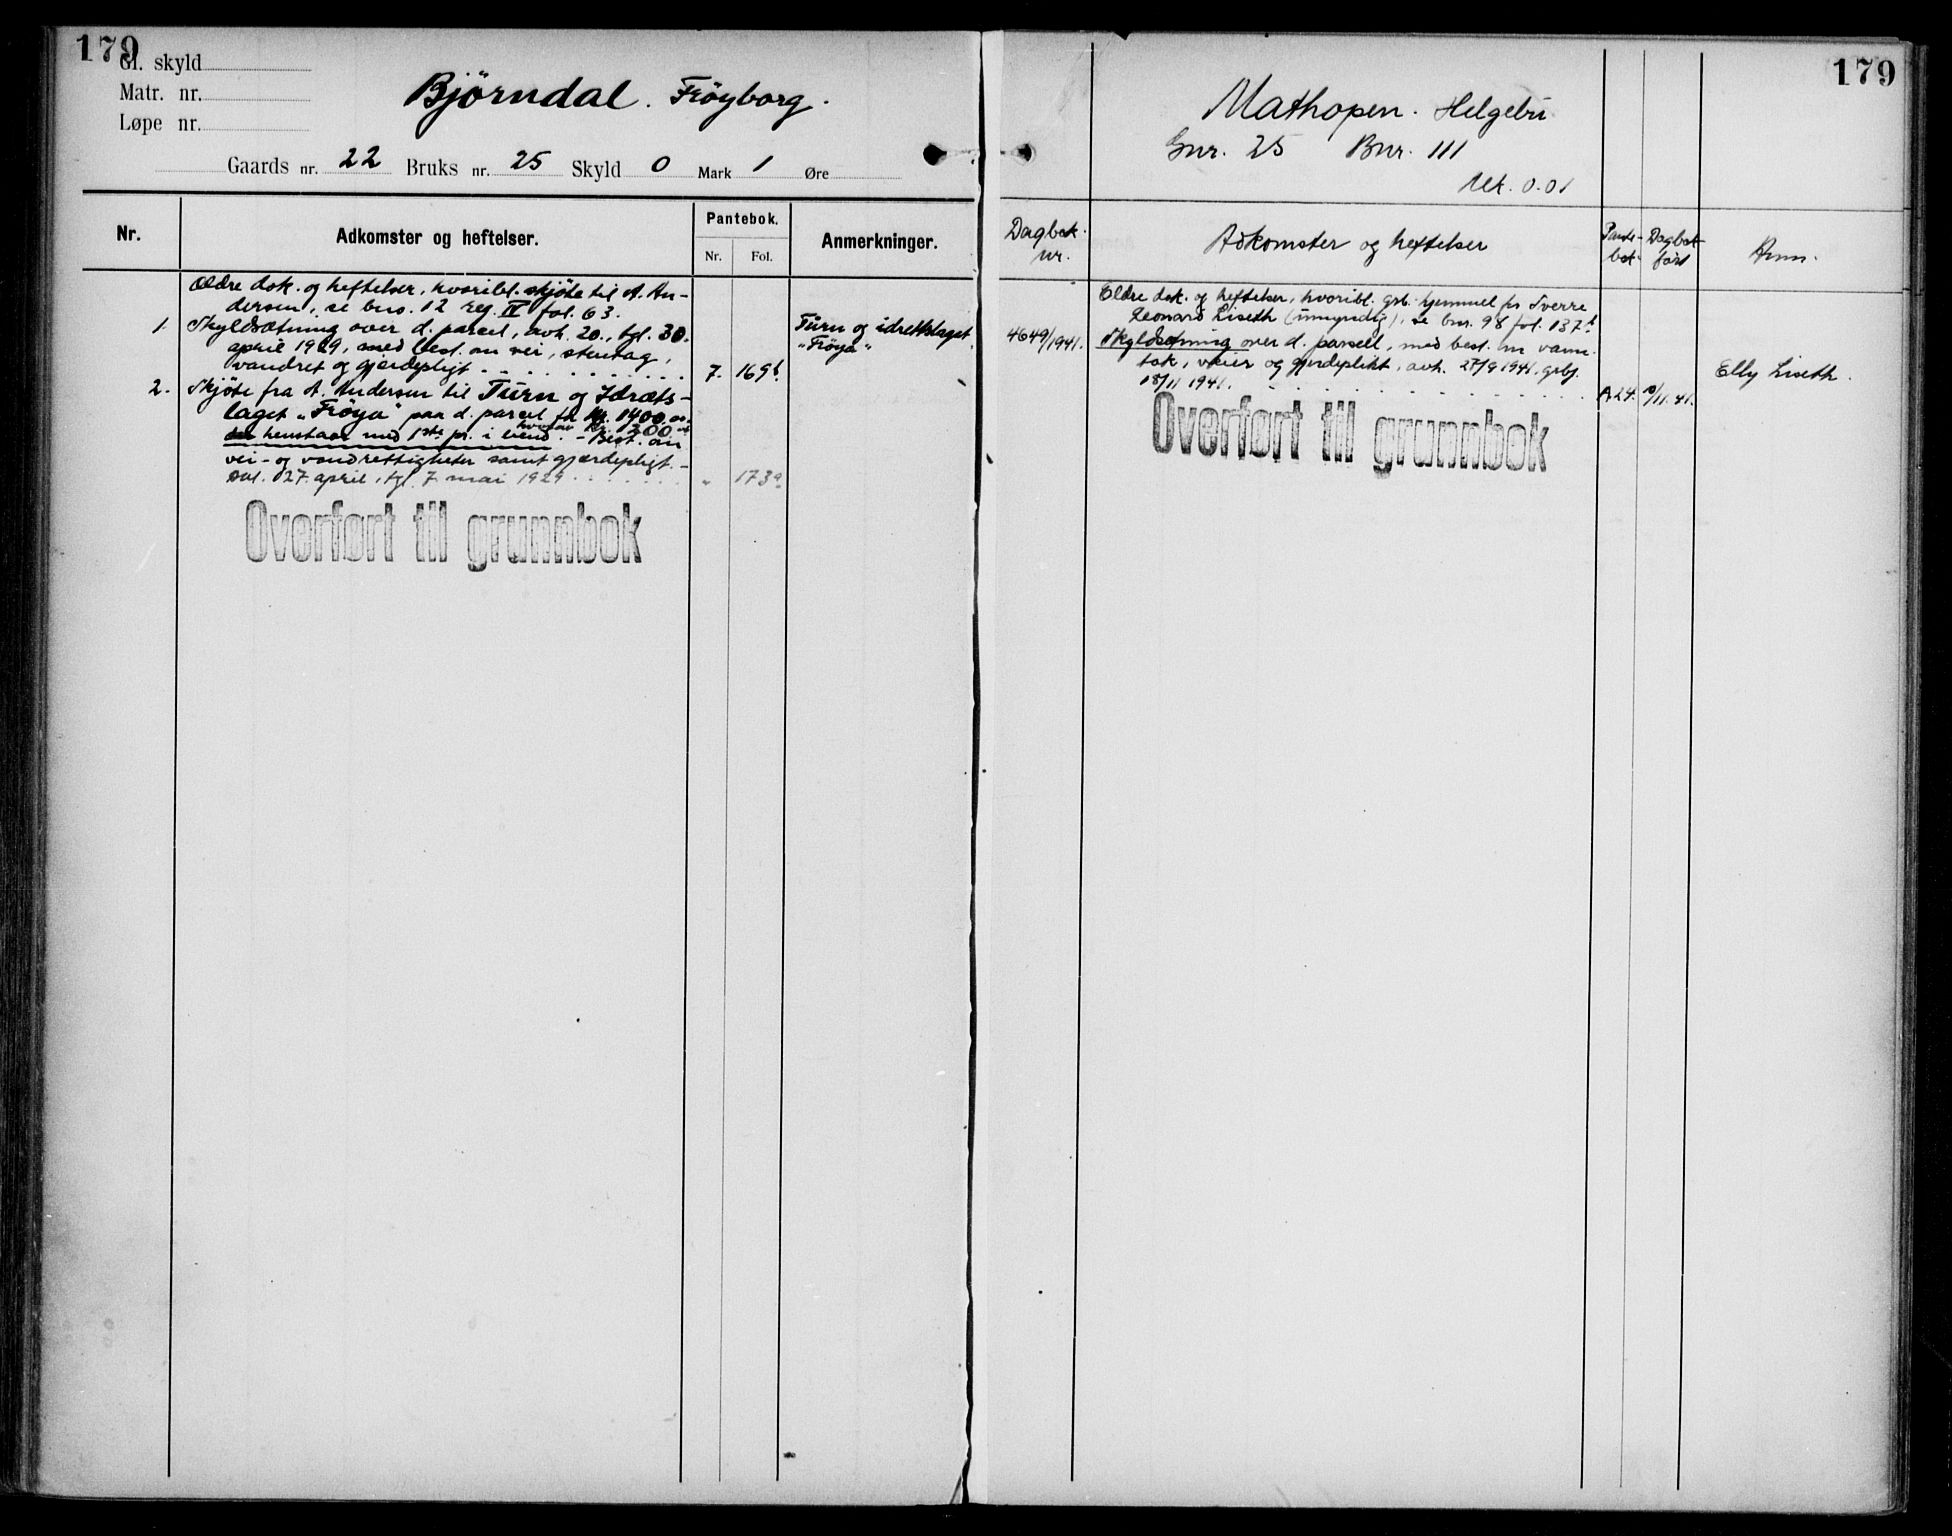 179
Gl. skyld
Matr. nr.
Løpe nr.
Bjørndal. Frøyborg.
Gaards nr. 22 Bruks nr. 25 Skyld 0 Mark 1 Øre
Nr.
Adkomster og heftelser.
Pantebok.
Nr. Fol.
Anmerkninger.
Ældre dok. og heftelser, hvoribl. skjøte til A. An-
dersen, se bno. 12 reg. IV fol. 63.
1. Skyldsætning over d. parcel, avh. 20., tgl. 30.
april 1929, med best. om vei, stentag,
vandret og gjerdepligt 7. 169b.
Turn og idrettslaget
"Frøya"
2. Skjøte fra A. Andersen til Turn og Idræts-
laget "Frøya" paa d. parcel for Kr. 1400.00
hvorav Kr. 1200.00
henstaar med 1ste pr. i eiend. - Best. om
vei- og vandrettigheter samt gjærdepligt. -
Dat. 27. april, tgl. 7. mai 1929 " 173a
Overført til grunnbok
179
Mathopen. Helgebu
Gnr. 25 Bnr. 111
Mk. 0.01
Dagbok
nr.
Adkomster og heftelser
Pante-
bok
Dagbok
ført
Anm.
Eldre dok. og heftelser, hvoribl. grb. hjemmel for Sverre
Leonard Liseth (umyndig), se bnr. 98 fol. 137b
4649/1941. Skyldsetning over d. parsell, med best. om vann-
tak, veier og gjerdeplikt, avh. 27/9 1941, grbf.
18/11 1941. A 24. /11.41.
Elly Liseth.
Overført til grunnbok